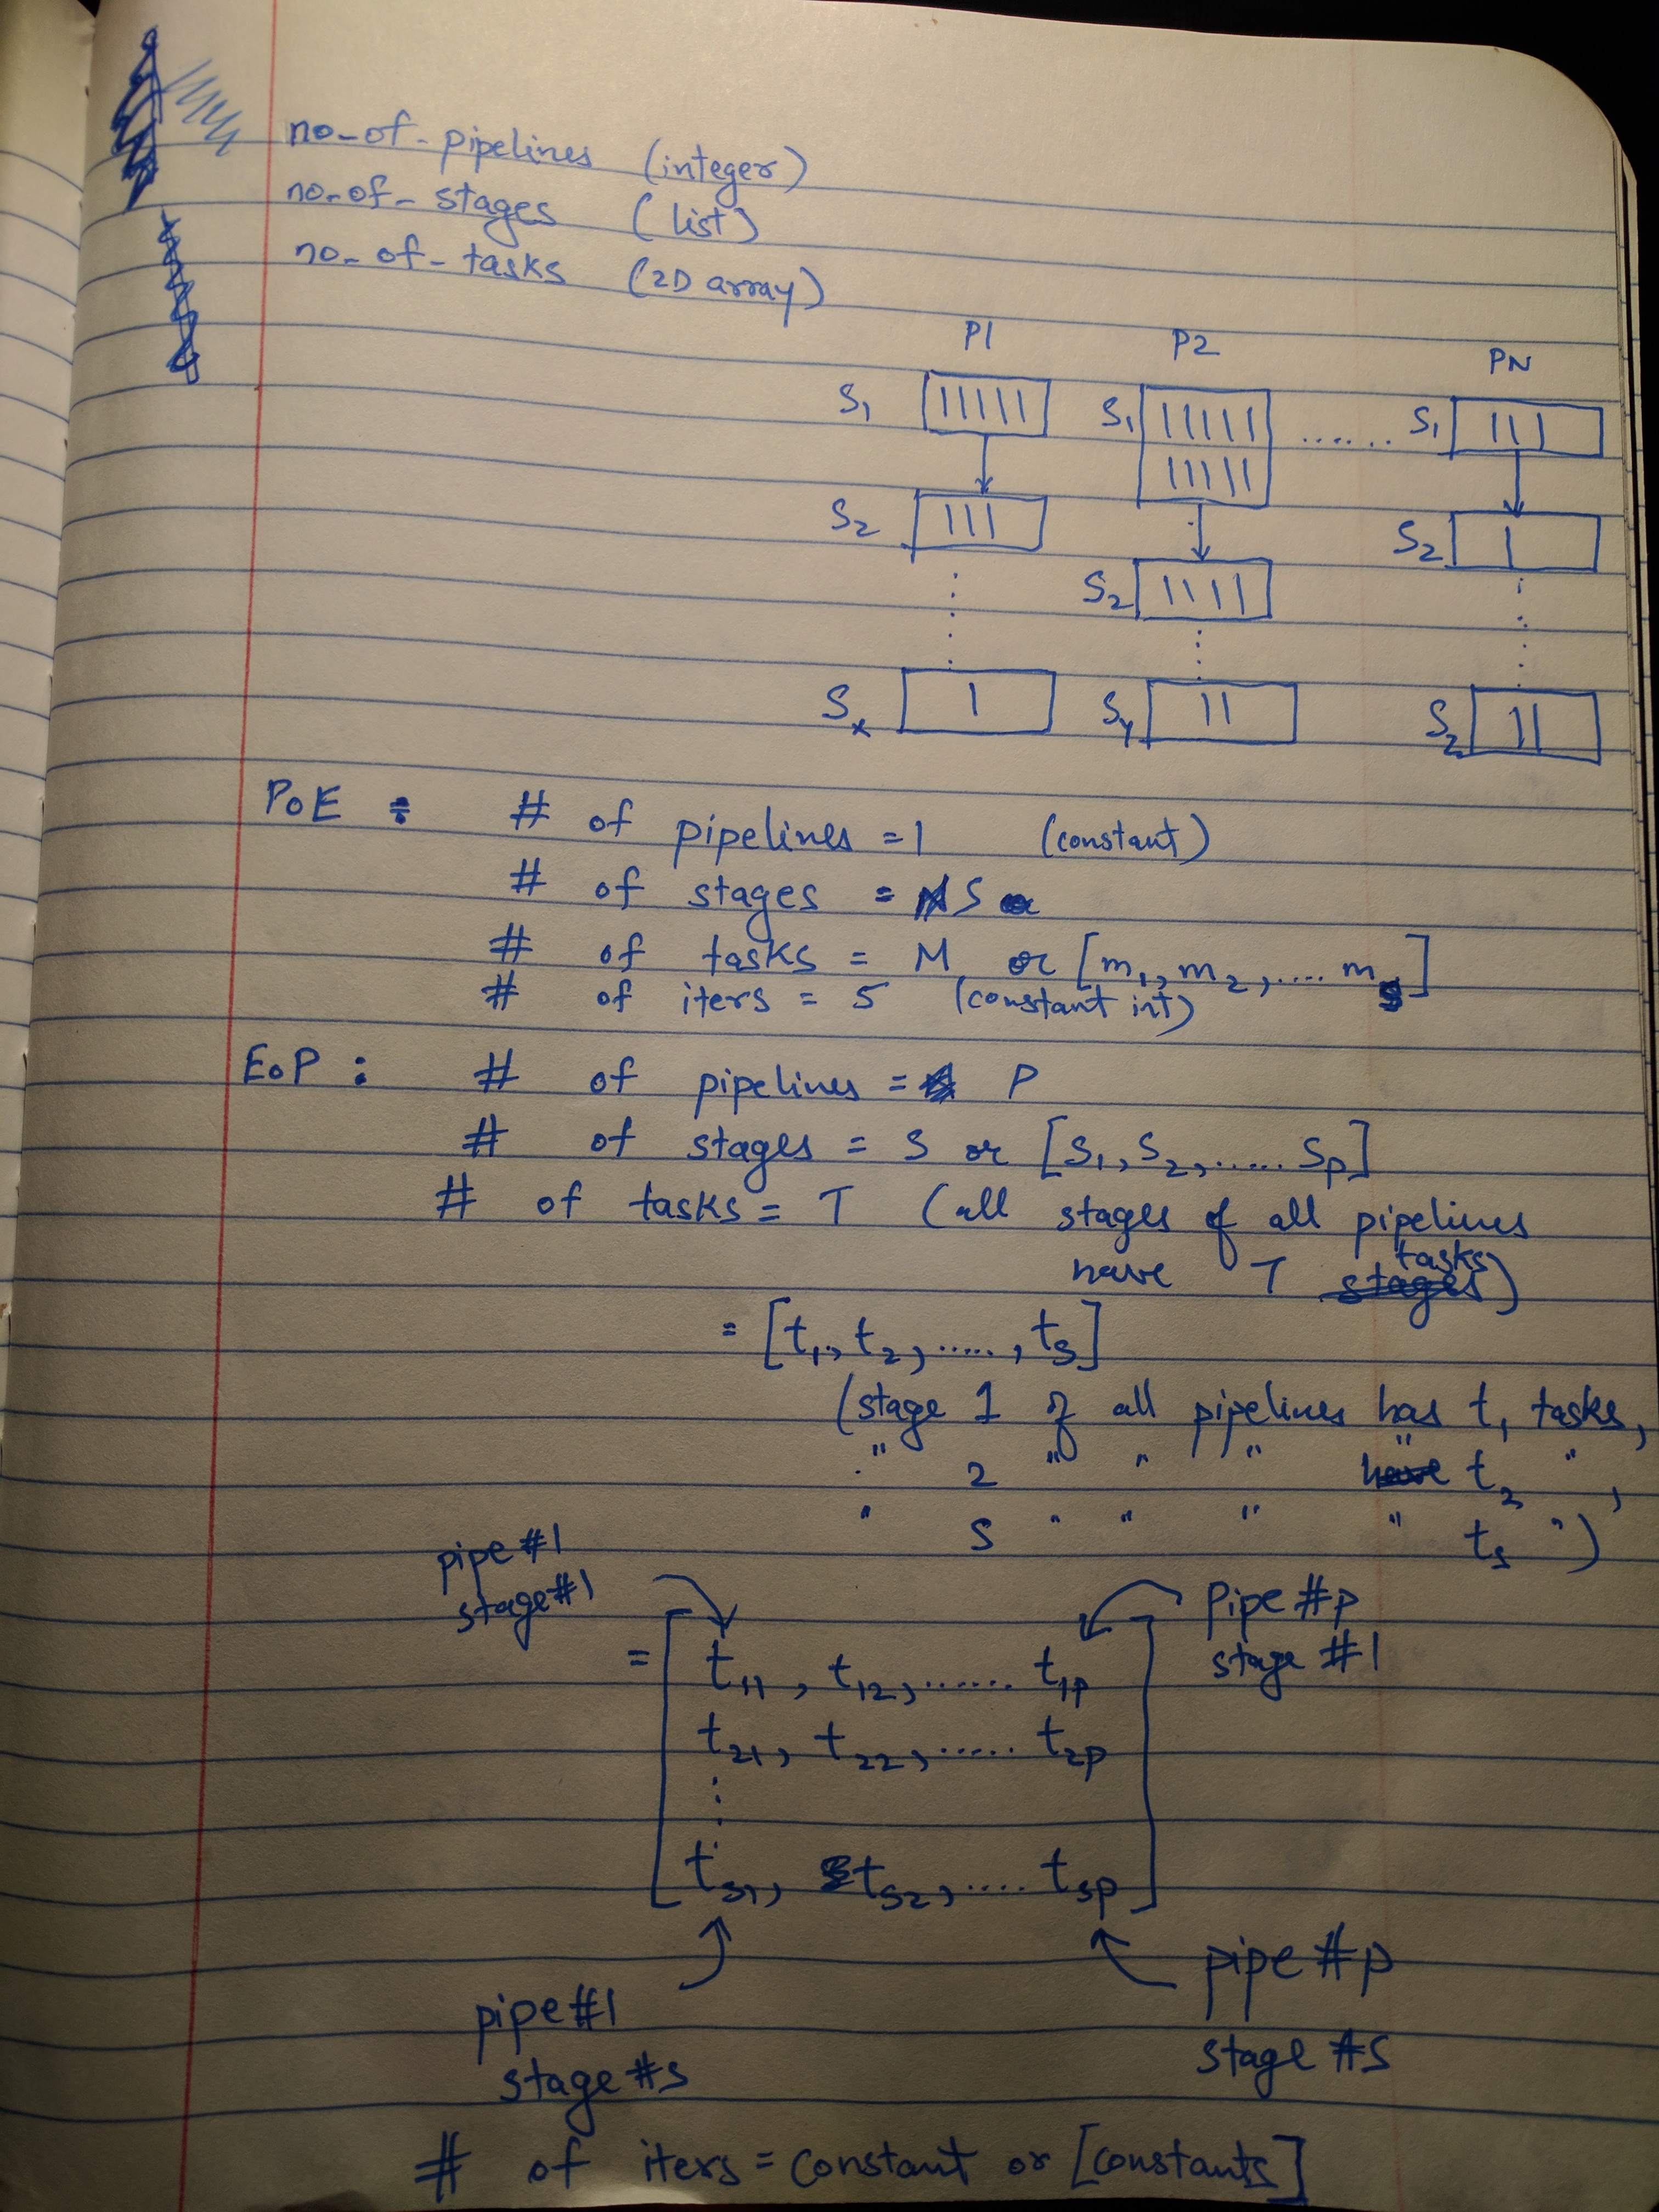 no-of-pipelines (integer)
no-of-stages (list)
no-of-tasks (2D array)
P1 P2 PN
S1 S1 ...... S1
S2 S2
S2
Sx Sy Sz
PoE : # of pipelines = 1 (constant)
# of stages = S
# of tasks = M or [m1, m2, .... ms]
# of iters = 5 (constant int)
EoP : # of pipelines = P
# of stages = S or [S1, S2, ..... Sp]
# of tasks = T (all stages of all pipelines
have T tasks)
= [t1, t2, ....., ts]
(stage 1 of all pipelines has t1 tasks,
" 2 " " " " t2 " ,
" S " " " " ts ")
pipe #1
stage #1
Pipe #p
stage #1
= [t11, t12, ...... t1p
t21, t22, ..... t2p
⋮
ts1, ts2, .... tsp]
pipe #1
stage #s
pipe #p
stage #s
# of iters = constant or [constants]